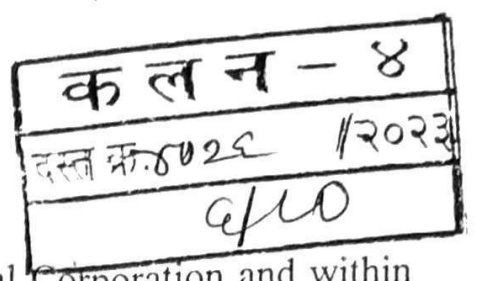 क ल न - ४
दस्त क्र. ४७२६ /२०२३
६/८०
Corporation and within